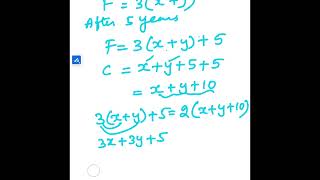 F = 3(x+y)
After 5 years
F = 3(x+y)+5
C = x+y+5+5
= x+y+10
3(x+y)+5=2(x+y+10)
3x+3y+5